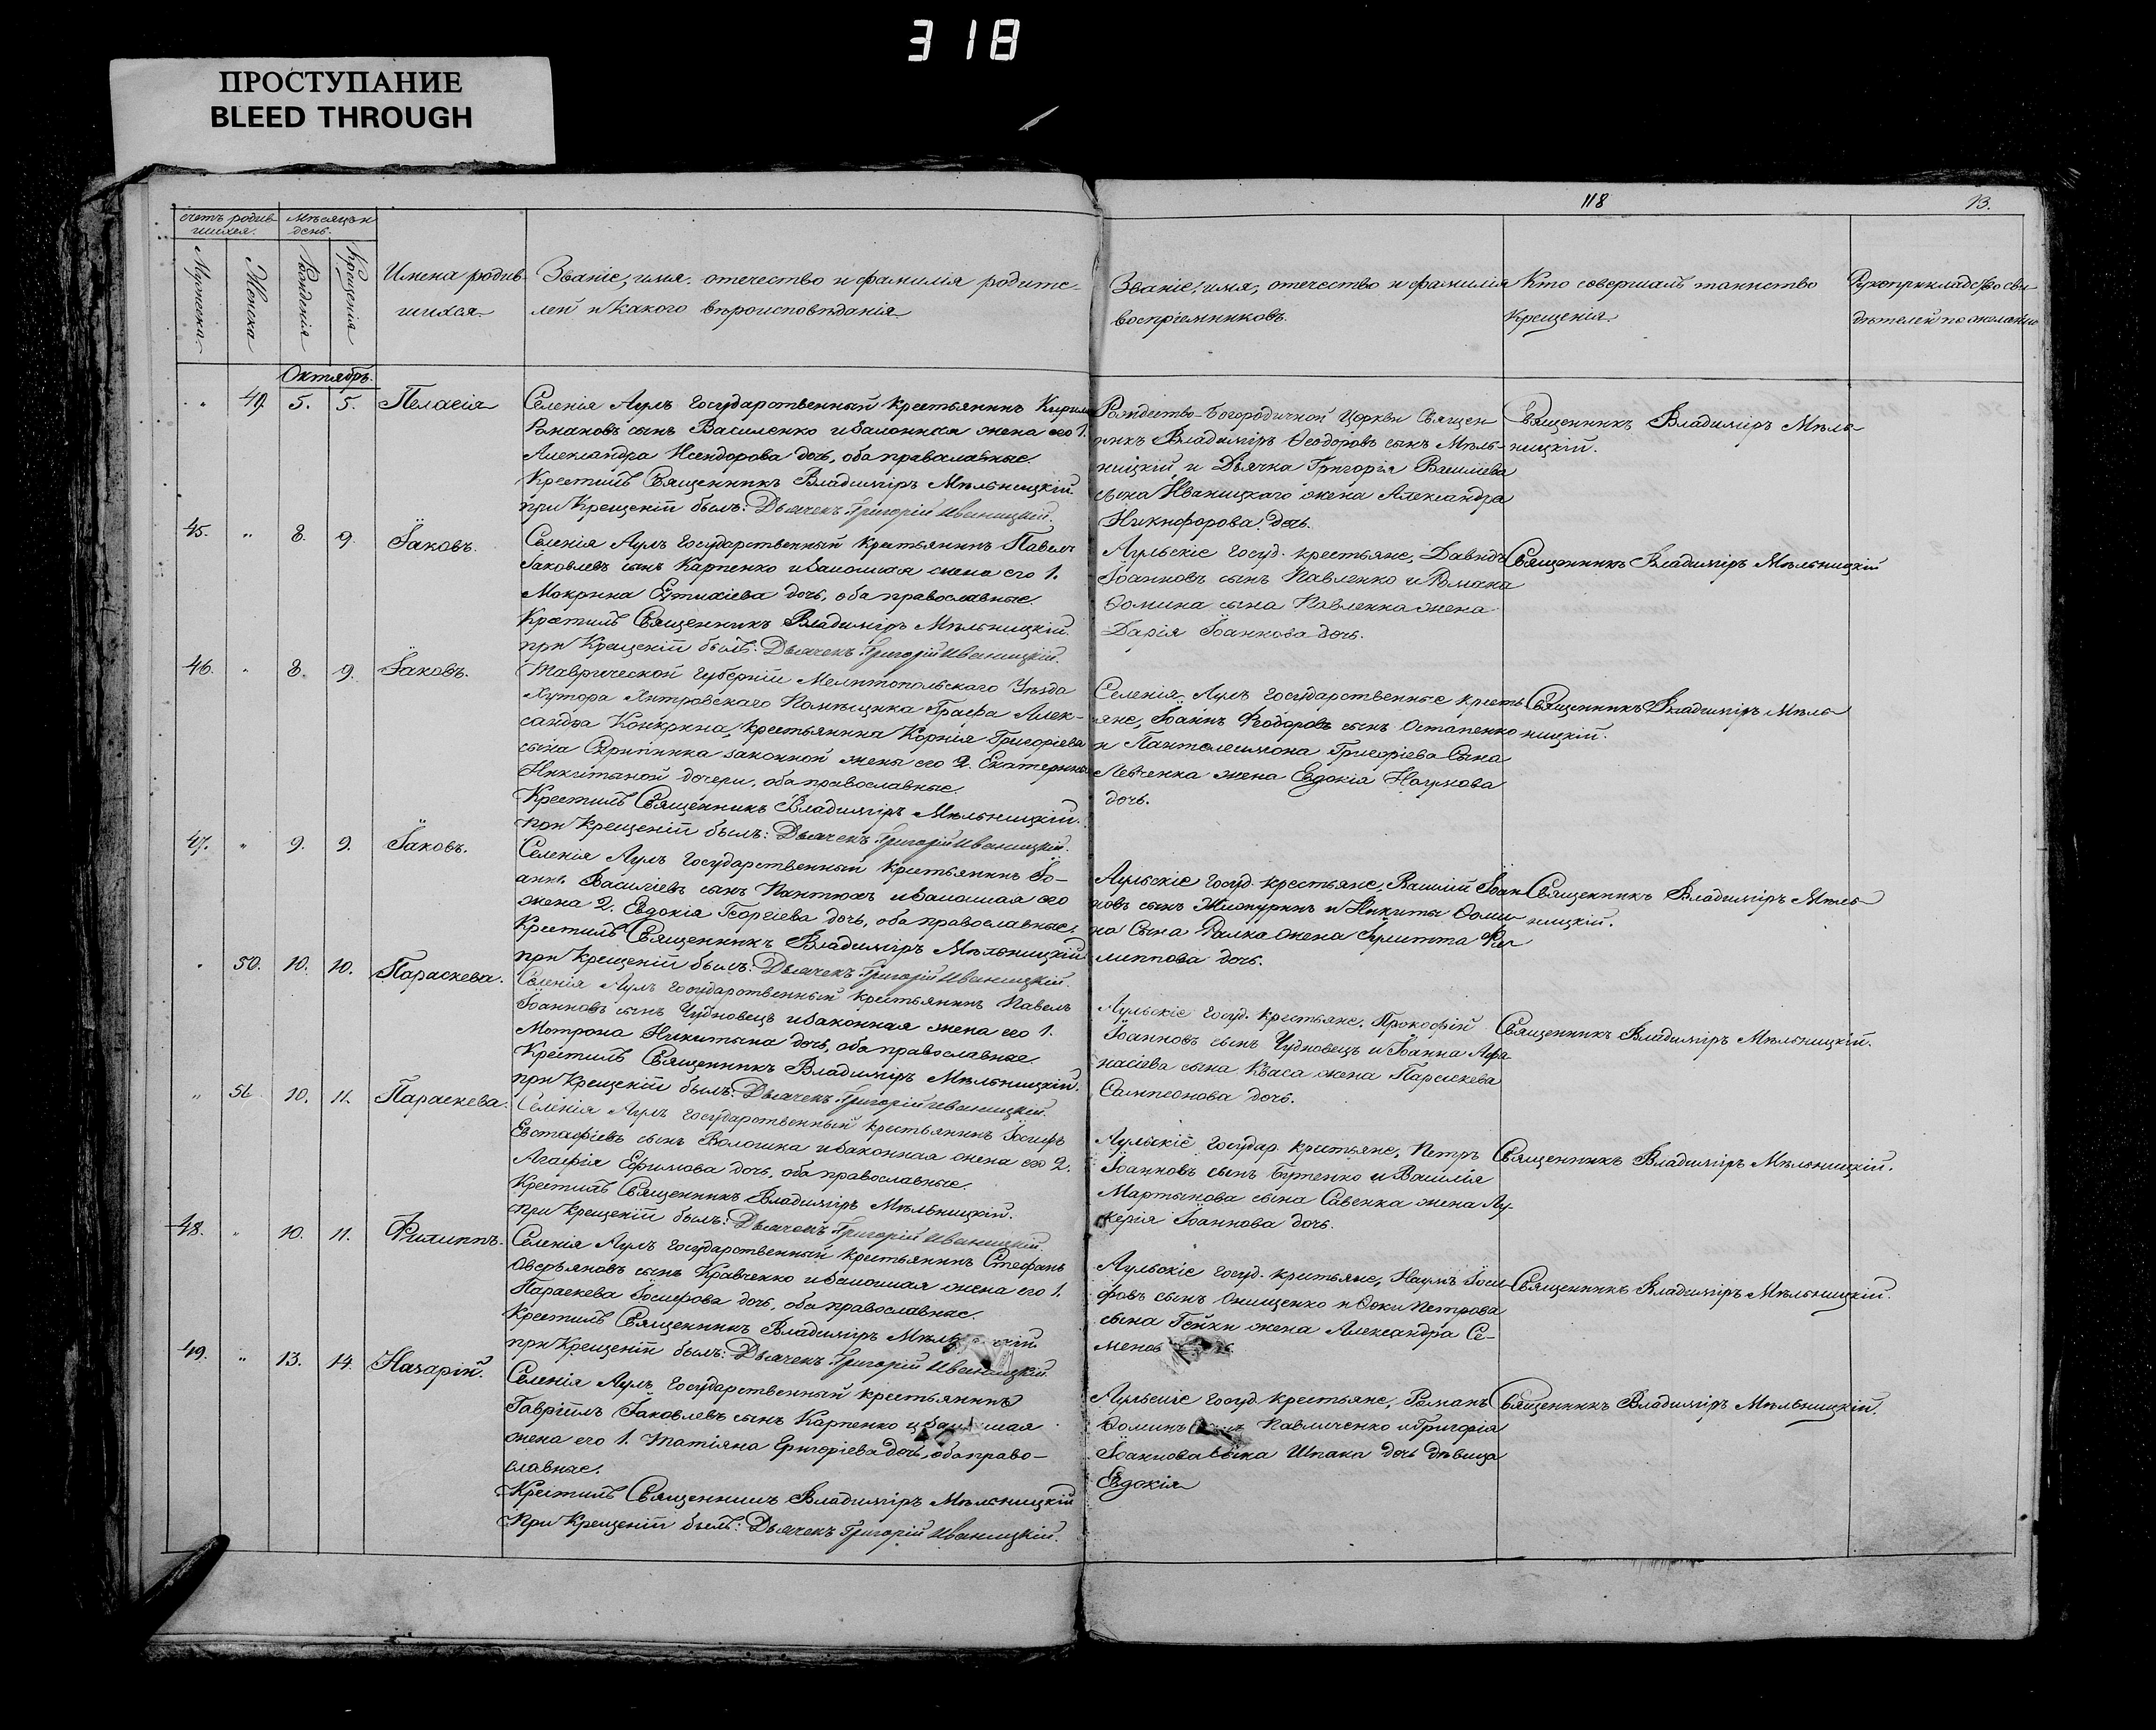 318
ПРОСТУПАНИЕ
BLEED THROUGH
118
13.
счетъ родив
шихся.
Мѣсяцъ и
день.
Мужеска
Женска
Рожденія
Крещенія
Имена родив
шихся
Званіе, имя, отечество и фамилія родите-
лей и какого вѣроисповѣданія
Званіе, имя, отечество и фамилія
воспріемниковъ.
Кто совершалъ таинство
крещенія
Рукоприкладство сви
дѣтелей по желанію
Октябрь.
" 49. 5. 5. Пелагія
Селенія Аулъ государственный крестьянинъ Кирилъ
Романовъ сынъ Василенко и законная жена его 1.
Александра дочь, оба православные.
Крестилъ Священникъ Владиміръ Мѣльницкій.
при Крещеніи былъ: Дьячекъ Григорій Иваницкій.
Рождество-Богородичной Церкви Священ
никъ Владиміръ Ѳеодоровъ сынъ Мѣль-
ницкій и Дьячка Григорія Васильева
сына Иваницкаго жена Александра
Никифорова дочь.
Священникъ Владиміръ Мѣль
ницкій.
45. " 8. 9. Іаковъ.
Селенія Аулъ государственный крестьянинъ Павелъ
Іаковлевъ сынъ Карпенко и законная жена его 1.
Мокрина дочь, оба православные.
Крестилъ Священникъ Владиміръ Мѣльницкій.
при Крещеніи былъ: Дьячекъ Григорій Иваницкій.
Аульскіе госуд. крестьяне, Давидъ
Іоанновъ сынъ Павленко и Романа
Ѳомина сына Павленка жена
Дарія Іоаннова дочь.
Священникъ Владиміръ Мѣльницкій
46. " 8. 9. Іаковъ.
Таврической губерніи Мелитопольскаго Уѣзда
Хутора Помѣщика Графа Алек-
сандра Канкрина, крестьянина Корнія Григоріева
сына законной жены его 2. Екатерины
Никитиной дочери, оба православные.
Крестилъ Священникъ Владиміръ Мѣльницкій.
при Крещеніи былъ: Дьячекъ Григорій Иваницкій.
Селенія Аулъ государственные кресть
яне, Іоаннъ Ѳеодоровъ сынъ Остапенко
и Пантелеимона Григоріева Сына
Левченка жена Евдокія Наумова
дочь.
Священникъ Владиміръ Мѣль
ницкій.
47. " 9. 9. Іаковъ.
Селенія Аулъ государственный крестьянинъ Іо-
аннъ Василіевъ сынъ Пантюхъ и законная его
жена 2. Евдокія Георгіева дочь, оба православные.
Крестилъ Священникъ Владиміръ Мѣльницкій
при Крещеніи былъ: Дьячекъ Григорій Иваницкій.
Аульскіе госуд. крестьяне, Василій Іоан
новъ сынъ и Никиты Ѳоми
на Сына жена Фи
липпова дочь.
Священникъ Владиміръ Мѣль
ницкій.
" 50. 10. 10. Параскева.
Селенія Аулъ государственный крестьянинъ Павелъ
Іоанновъ сынъ Чудновецъ и законная жена его 1.
Мотрона Никитина дочь, оба православные.
Крестилъ Священникъ Владиміръ Мѣльницкій.
при Крещеніи былъ: Дьячекъ Григорій Иваницкій.
Аульскіе госуд. крестьяне, Прокофій
Іоанновъ сынъ Чудновецъ и Іоанна Афа
насіева сына Кваса жена Параскева
Сампсонова дочь.
Священникъ Владиміръ Мѣльницкій.
" 51. 10. 11. Параскева.
Селенія Аулъ государственный крестьянинъ Іосифъ
Евстафіевъ сынъ и законная жена его 2.
Агафія Ефимова дочь, оба православные.
Крестилъ Священникъ Владиміръ Мѣльницкій.
при Крещеніи былъ: Дьячекъ Григорій Иваницкій.
Аульскіе государ. крестьяне, Петръ
Іоанновъ сынъ Бутенко и Василія
Мартынова сына Савенка жена Лу-
керія Іоаннова дочь.
Священникъ Владиміръ Мѣльницкій.
48. " 10. 11. Филиппъ.
Селенія Аулъ государственный крестьянинъ Стефанъ
Оверьяновъ сынъ Кравченко и законная жена его 1.
Параскева Іосифова дочь, оба православные.
Крестилъ Священникъ Владиміръ
при Крещеніи былъ: Дьячекъ Григорій Иваницкій.
Аульскіе госуд. крестьяне, Наумъ Іоси
фовъ сынъ Онищенко и Петрова
сына Гейки жена Александра Се-
менов
Священникъ Владиміръ Мѣльницкій.
49. " 13. 14. Назарій.
Селенія Аулъ государственный крестьянинъ
Гавріилъ Іаковлевъ сынъ Карпенко и
жена его 1. Татіяна Григоріева дочь, оба право-
славные.
Крестилъ Священникъ Владиміръ Мѣльницкій
при Крещеніи былъ: Дьячекъ Григорій Иваницкій.
Аульскіе госуд. крестьяне, Романъ
Ѳоминъ Павличенко и Григорія
Іоаннова сына Шпака дочь дѣвица
Евдокія
Священникъ Владиміръ Мѣльницкій.